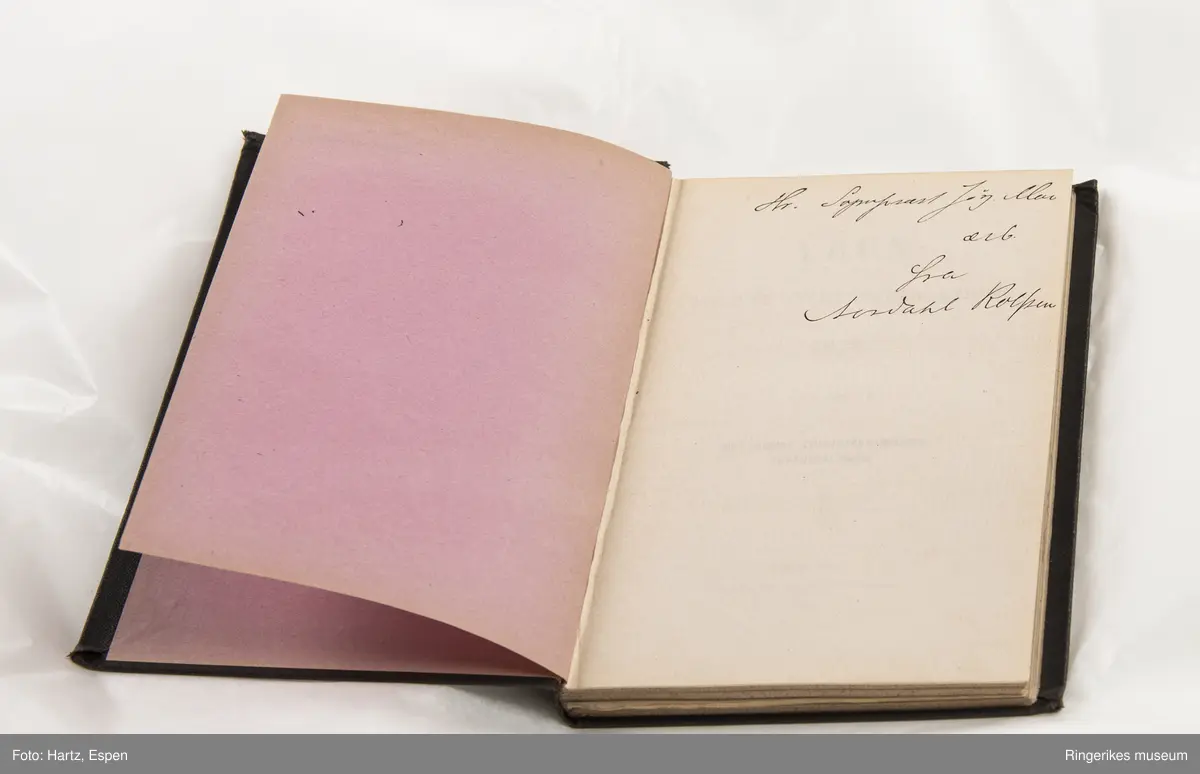 Hr. Sogneprest Jørg. Moe
ærb.
fra
Nordahl Rolfsen
Foto: Hartz, Espen
Ringerikes museum